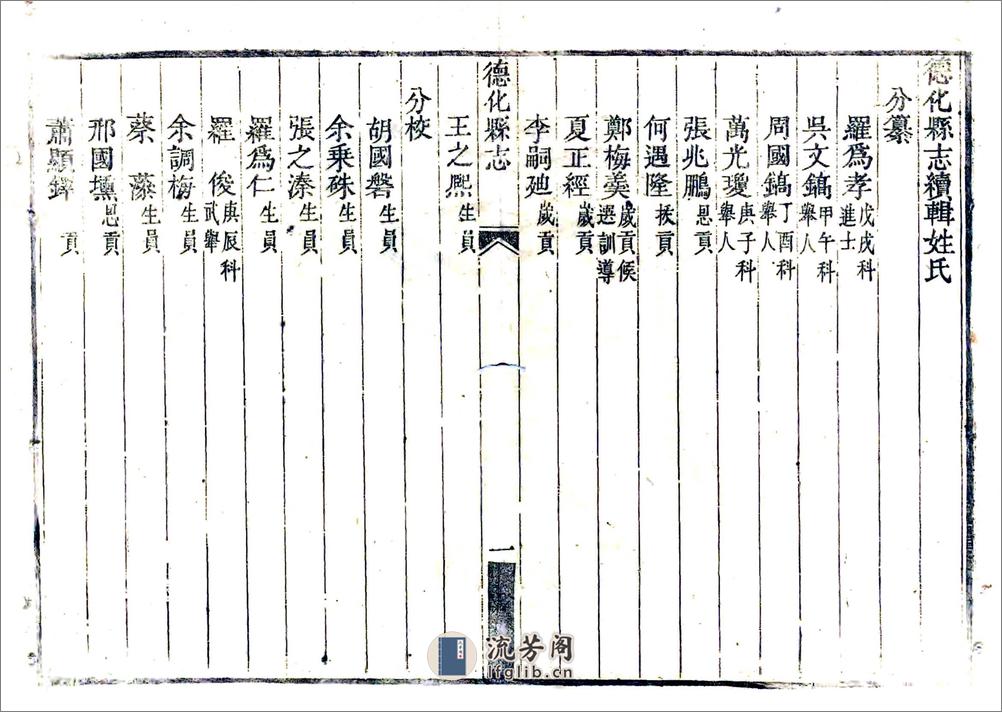 德化縣志續輯姓氏
分纂
羅爲孝 戊戌科進士
吳文鎬 甲午科舉人
周國鎬 丁酉科舉人
萬光瓊 庚子科舉人
張兆鵬 恩貢
何遇隆 拔貢
鄭梅羹 歲貢候選訓導
夏正經 歲貢
李嗣廸 歲貢
德化縣志
一
王之熙 生員
分校
胡國磐 生員
余乗硃 生員
張之溱 生員
羅爲仁 生員
羅俊 庚辰科武舉
余調梅 生員
蔡藻 生員
邢國 恩貢
蕭顯鐸 貢
流芳阁
lfglib.cn